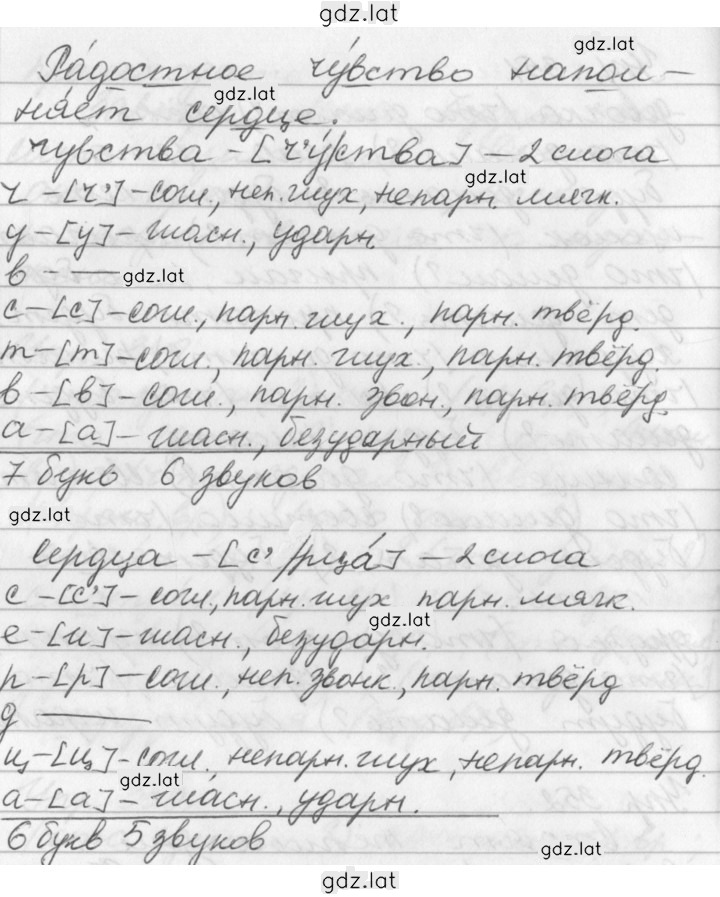 gdz.lat
gdz.lat
Ра́достное чу́вство напол-
gdz.lat
ня́ет сердце.
чувства - [ч'у́/ства] - 2 слога
gdz.lat
ч - [ч'] - согл., неп. глух., непарн. мягк.
у - [у] - гласн., ударн.
в - — gdz.lat
с - [с] - согл., парн. глух., парн. твёрд.
т - [т] - согл., парн. глух., парн. твёрд.
в - [в] - согл., парн. звон., парн. твёрд.
а - [а] - гласн., безударный
7 букв 6 звуков
gdz.lat
Сердца - [с' /рца́] - 2 слога
с - [с'] - согл., парн. глух парн. мягк.
gdz.lat
е - [и] - гласн., безударн.
р - [р] - согл., неп. звонк., парн. твёрд
д —
ц - [ц] - согл., непарн. глух, непарн. твёрд.
gdz.lat
а - [а] - гласн., ударн.
6 букв 5 звуков
gdz.lat
gdz.lat